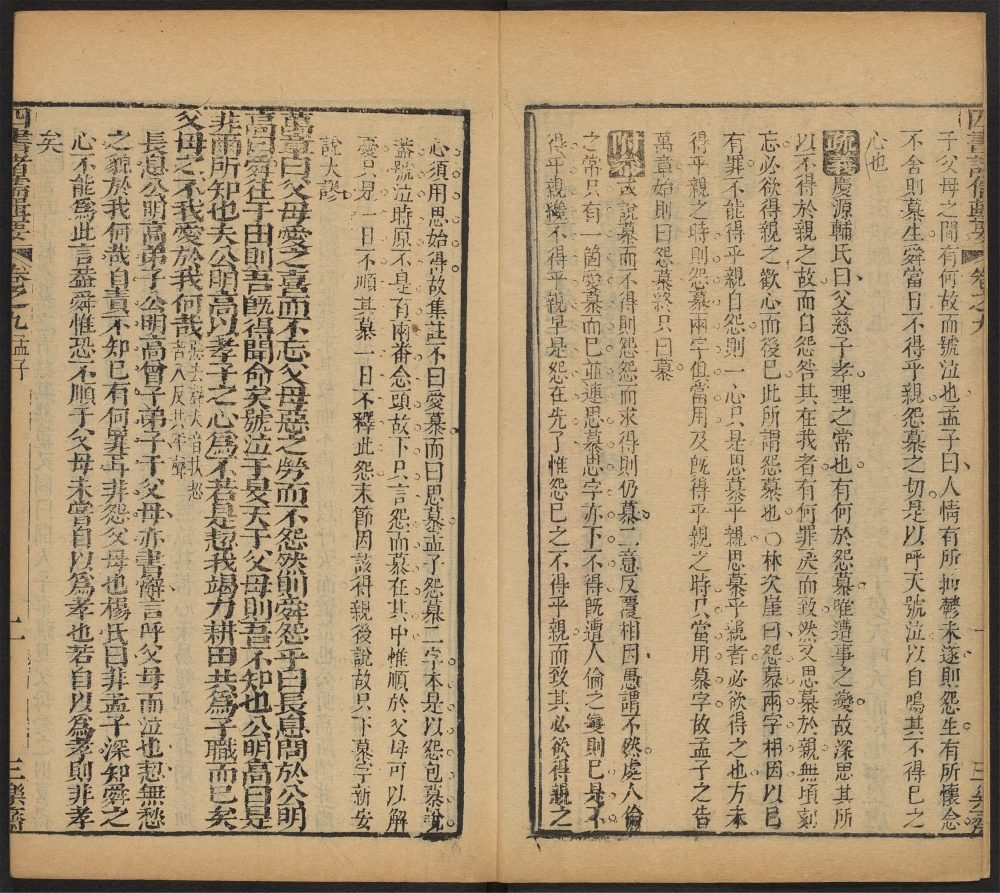 四書諸儒輯要 卷之九 三樂齋
子父母之間有何故而號泣也孟子曰人情有所抑鬱未遂則怨生有所懷念
不舍則慕生舜當日不得乎親怨慕之切是以呼天號泣以自鳴其不得已之
心也
疏義慶源輔氏曰父慈子孝理之常也有何於怨慕唯遭事之變故深思其所
以不得於親之故而自怨咎其在我者有何罪戾而致然又思慕於親無頃刻
忘必欲得親之歡心而後已此所謂怨慕也○林次崖曰怨慕兩字相因以已
有罪不能得乎親自怨則一心只是思慕乎親思慕乎親者必欲得之也方未
得乎親之時則怨慕兩字俱當用及既得乎親之時只當用慕字故孟子之告
萬章始則曰怨慕終只曰慕
附 或說慕而不得則怨怨而求得則仍慕二意反覆相因愚謂不然處人倫
之常只有一箇愛慕而已並連思慕思字亦下不得既遭人倫之變則已是不
得乎親纔不得乎親早是怨在先了惟怨已之不得乎親而致其必欲得親之
心須用思始得故集註不曰愛慕而曰思慕孟子怨慕二字本是以怨包慕說
蓋號泣時原不是有兩番念頭故下只言怨而慕在其中惟順於父母可以解
憂只見一日不順其慕一日不釋此怨末節因該得親後說故只下慕字新安
說大謬
萬章曰父母愛之喜而不忘父母惡之勞而不怨然則舜怨乎曰長息問於公明
高曰舜往于田則吾既得聞命矣號泣于旻天于父母則吾不知也公明高曰是
非爾所知也夫公明高以孝子之心爲不若是恝我竭力耕田共爲子職而已矣
父母之不我愛於我何哉惡去聲夫音扶恝
苦八反共平聲
長息公明高弟子公明高曾子弟子于父母亦書辭言呼父母而泣也恝無愁
之貌於我何哉自責不知已有何罪耳非怨父母也楊氏曰非孟子深知舜之
心不能爲此言蓋舜惟恐不順于父母未嘗自以爲孝也若自以爲孝則非孝
矣
四書諸儒輯要 卷之九孟子 二 三樂齋